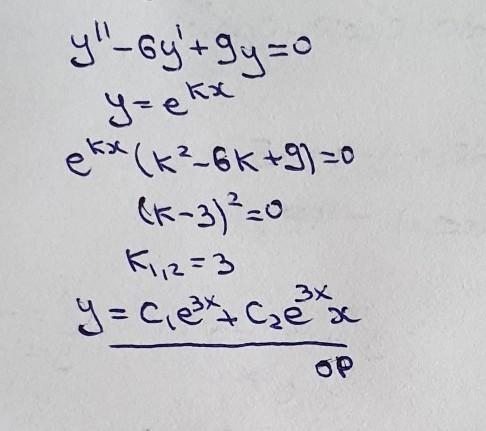 y''-6y'+9y=0
y=e^{kx}
e^{kx}(k²-6k+9)=0
(k-3)²=0
K₁,₂=3
y=C₁e^{3x}+C₂e^{3x}x
OP